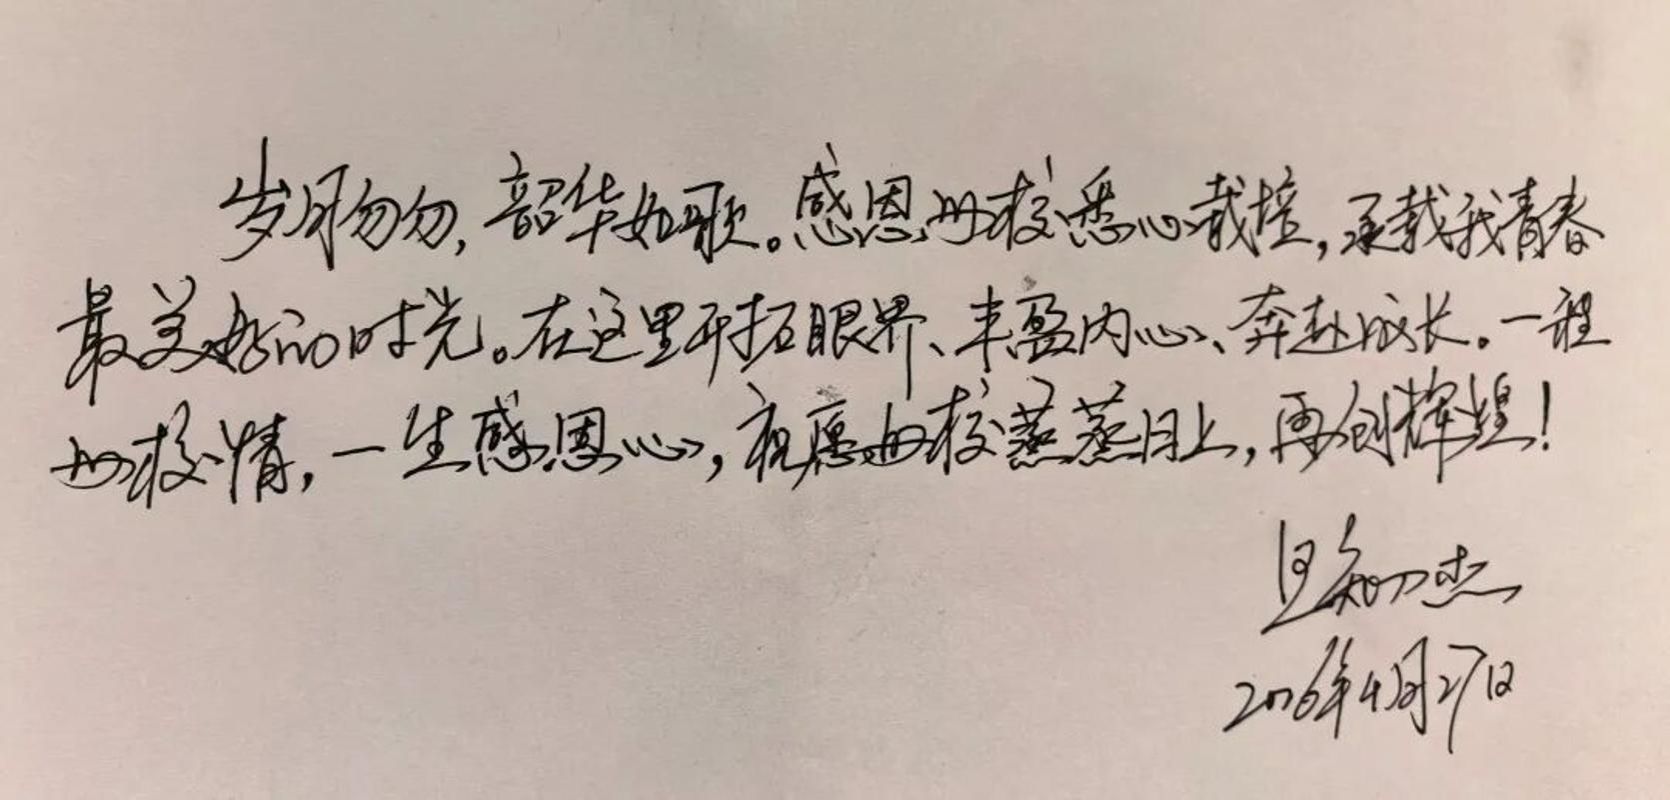 岁月匆匆，韶华如歌。感恩母校悉心栽培，承载我青春
最美好的时光。在这里开拓眼界、丰盈内心、奔赴成长。一程
母校情，一生感恩心，祝愿母校蒸蒸日上，再创辉煌！
杰
2026年4月27日